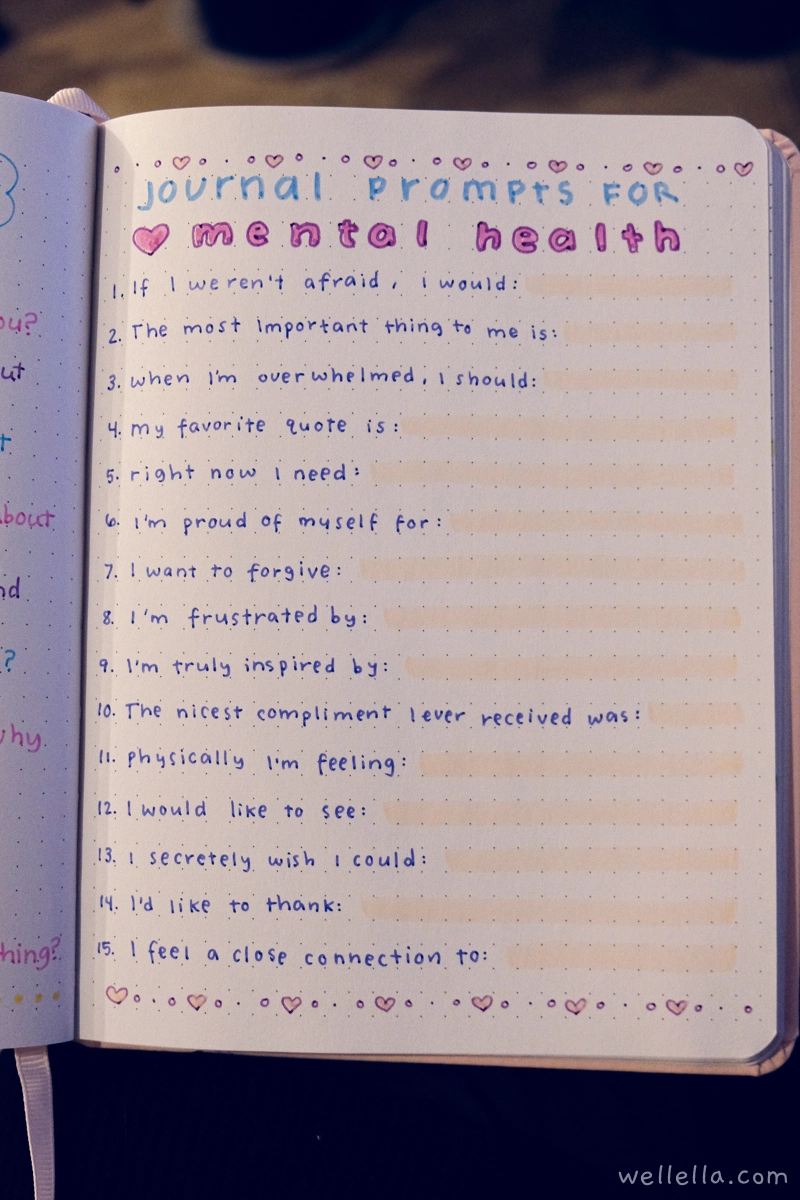 ou?
ut
t
about
nd
?
why
hing?
Journal prompts FOR
mental health
1. If I weren't afraid, i would:
2. The most important thing to me is:
3. when I'm overwhelmed, I should:
4. my favorite quote is:
5. right now I need:
6. I'm proud of myself for:
7. I want to forgive:
8. I'm frustrated by:
9. I'm truly inspired by:
10. The nicest compliment I ever received was:
11. physically I'm feeling:
12. I would like to see:
13. I secretely wish I could:
14. I'd like to thank:
15. I feel a close connection to:
wellella.com